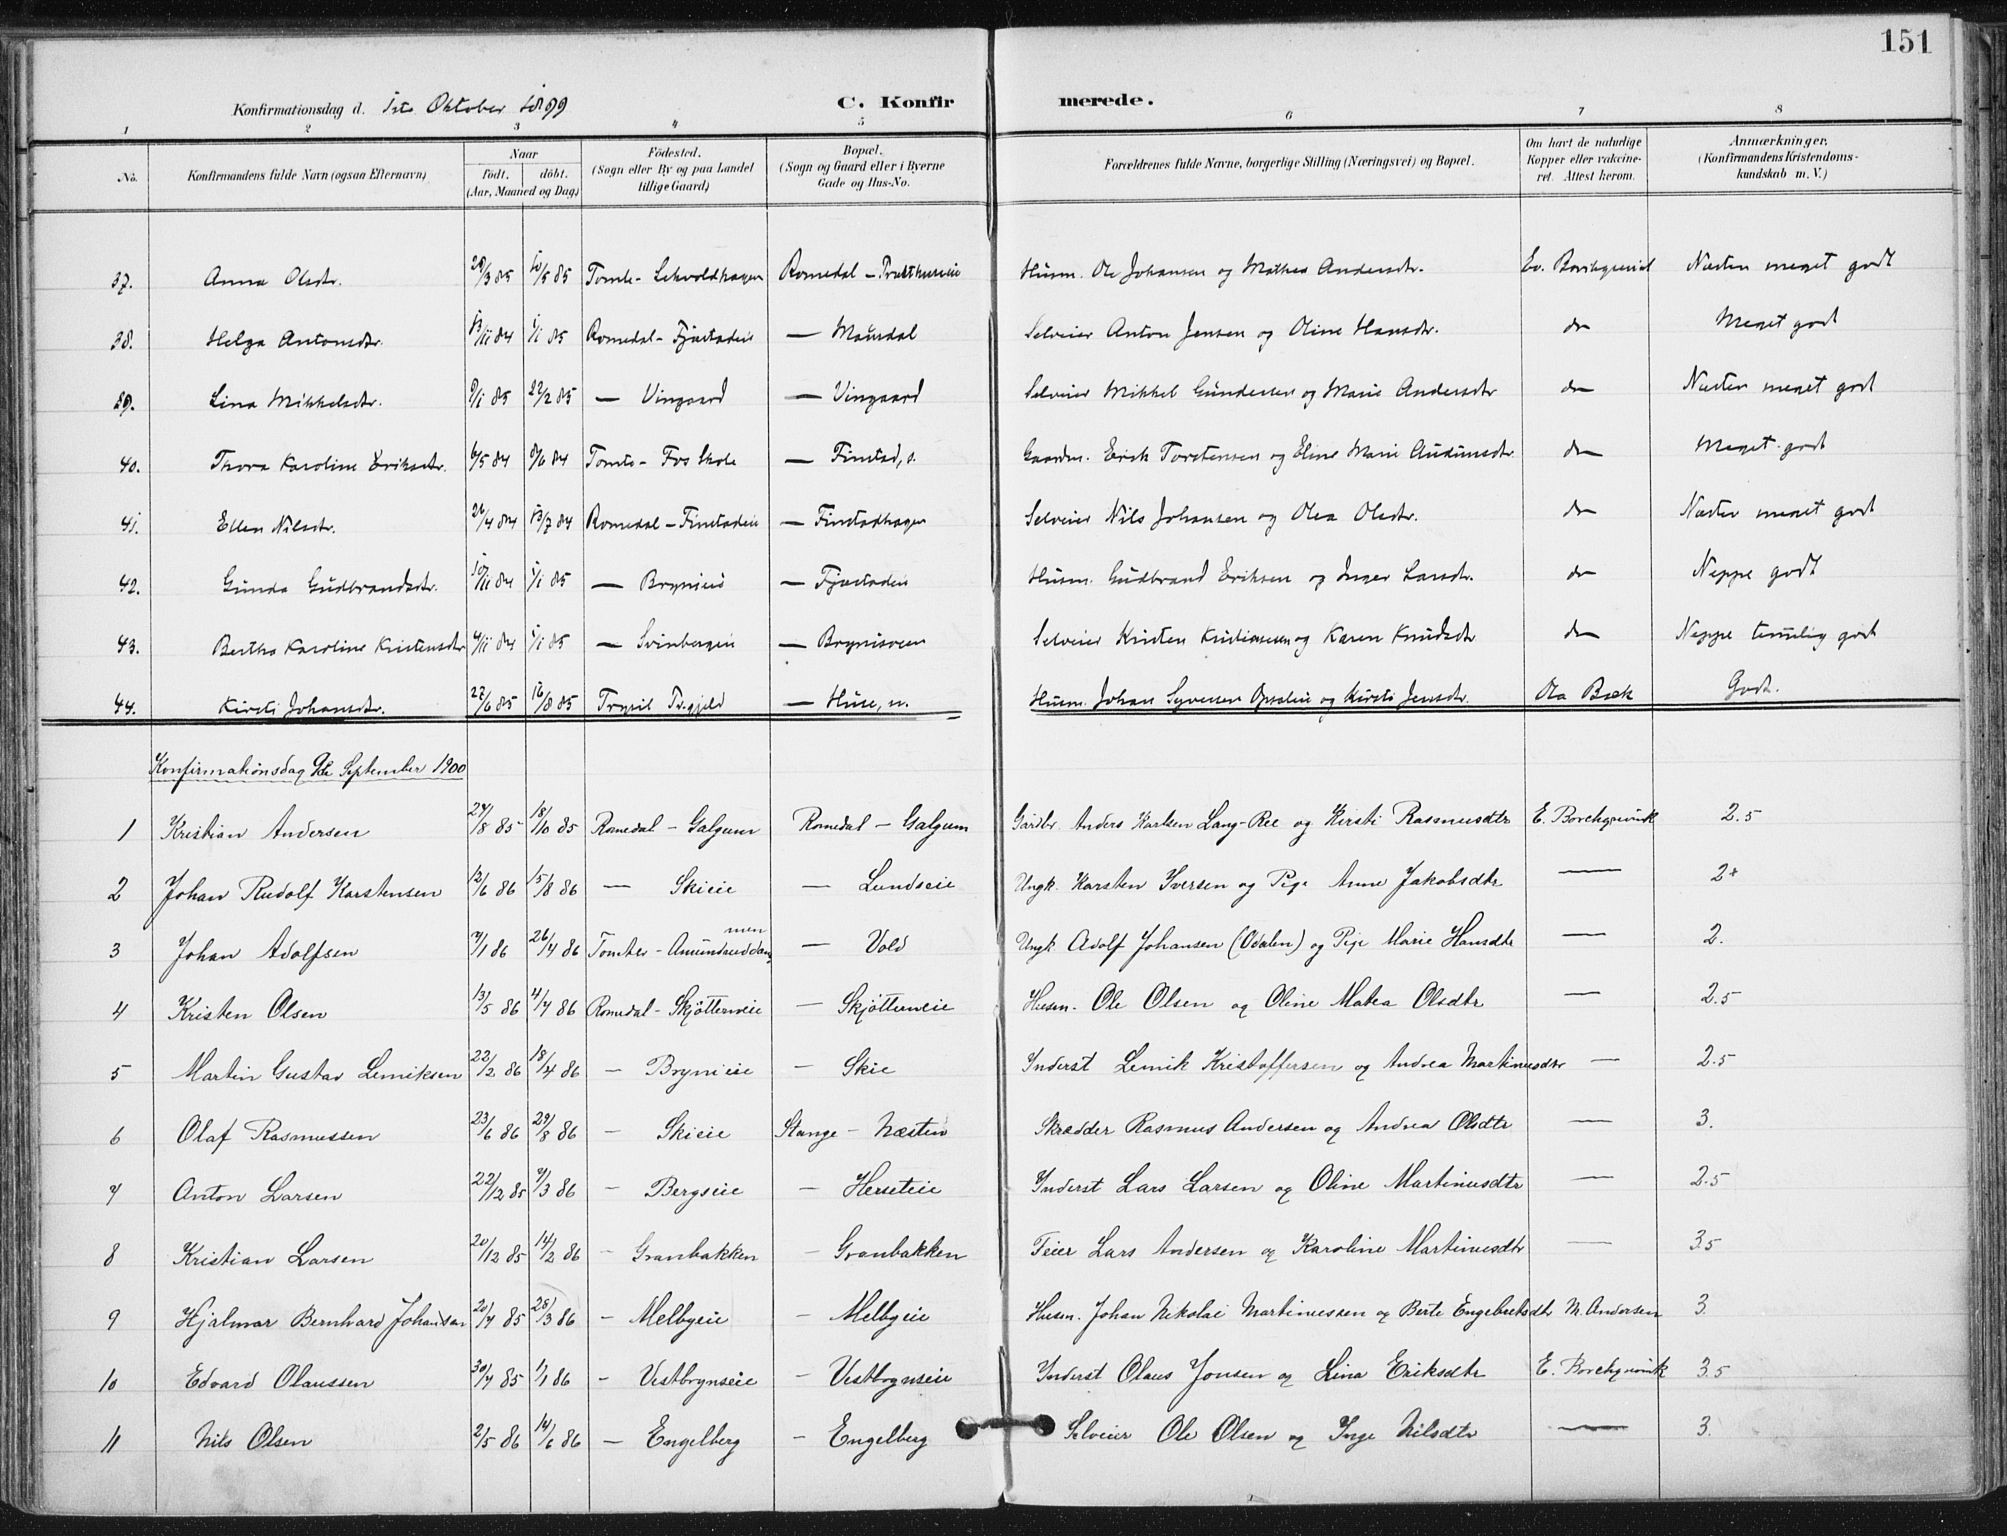 151
Konfirmationsdag d. 1ste Oktober 1899 C. Konfirmerede.
1 2 3 4 5 6 7 8
No. Konfirmandens fulde Navn (ogsaa Efternavn) Naar født. døbt. (Aar, Maaned og Dag) Fødested. (Sogn eller By og paa Landet tillige Gaard) Bopæl. (Sogn og Gaard eller i Byerne Gade og Hus-No. Forældrenes fulde Navne, borgerlige Stilling (Næringsvei) og Bopæl. Om havt de naturlige Kopper eller vakcineret. Attest herom. Anmærkninger. (Konfirmandens Kristendomskundskab m. V.)
37. Anna Olsdtr. 29/3 85 10/5 85 Tomte- Romedal - Husm. Ole Johansen og Mathea Andersdtr. Ev. Næsten meget godt
38. Helga Antonsdtr. 13/11 84 1/1 85 Romedal - Fjæstadeie — Mausdal Selveier Anton Jensen og Oline Hansdtr. do Meget godt
39. Lina Mikkelsdtr. 9/1 85 22/2 85 — Vingaard — Vingaard Selveier Mikkel Gundersen og Marie Andersdtr do Næsten meget godt
40. Thora Karoline Eriksdtr. 6/5 84 8/6 84 Tomte - Frs Skole — Finstad, s. Gaardm. Erik Torstensen og Eline Marie Audunsdtr do Meget godt
41. Ellen Nilsdtr. 26/4 84 13/7 84 Romedal - Finstadeie — Finstadhagen Selveier Nils Johansen og Olea Olsdtr. do Næsten meget godt
42. Gunda Gudbrandsdtr. 10/11 84 1/1 85 — Brynieie — Fjæstadeie Husm. Gudbrand Eriksen og Inger Larsdtr. do Neppe godt
43. Bertha Karoline Kristensdtr 4/11 84 1/1 85 — Svinbergeie — Selveier Kristen Kristiansen og Karen Knudsdtr do Neppe temelig godt
44. Kirsti Johansdtr. 27/6 85 16/8 85 Trysil Prgjeld — Huse, n. Husm. Johan Syversen Opsaleie og Kirsti Jensdtr. Ola Bæk Godt.
Konfirmationsdag 9de September 1900
1 Kristian Andersen 27/8 85 18/10 85 Romedal - Galgum Romedal - Galgum Gardbr. Anders Karlsen Lang-Ree og Kirsti Rasmusdtr E. Borchgrevink 2.5
2 Johan Rudolf Karstensen 12/6 86 15/8 86 — Skieie — Lundseie Ungk. Karsten Iversen og Pige Anne Jakobsdtr — 2+
3 Johan Adolfsen 7/1 86 26/4 86 Tomter - Amundruddammen — Vold Ungk. Adolf Johansen (Odalen) og Pige Marie Hansdtr — 2.
4 Kristen Olsen 13/5 86 4/7 86 Romedal - Skjøttemeie — Skjøttemeie Husm. Ole Olsen og Oline Matea Olsdtr — 2.5
5 Martin Gustav Lemiksen 22/2 86 18/4 86 — Brynieie — Skie Inderst Lemik Kristoffersen og Andrea Martinusdtr — 2.5
6 Olaf Rasmussen 23/6 86 29/8 86 — Skieie Stange - Næsten Skrædder Rasmus Andersen og Andrea Olsdtr — 3.
7 Anton Larsen 22/12 85 7/3 86 — Bergseie — Herseteie Inderst Lars Larsen og Oline Martinusdtr — 2.5
8 Kristian Larsen 20/12 85 14/2 86 — Granbakken — Granbakken Feier Lars Andersen og Karoline Martinusdtr — 3.5
9 Hjalmar Bernhard Johansen 20/7 85 28/3 86 — Melbyeie — Melbyeie Husm. Johan Nikolai Martinussen og Berte Engebretsdtr M. Andersen 3.
10 Edvard Olaussen 30/7 85 1/1 86 — Vestbrynseie — Vestbrynseie Inderst Olaus Jonsen og Lina Eriksdtr E. Borchgrevink 3.5
11 Nils Olsen 2/5 86 14/6 86 — Engelberg — Engelberg Selveier Ole Olsen og Inge Nilsdtr — 3.